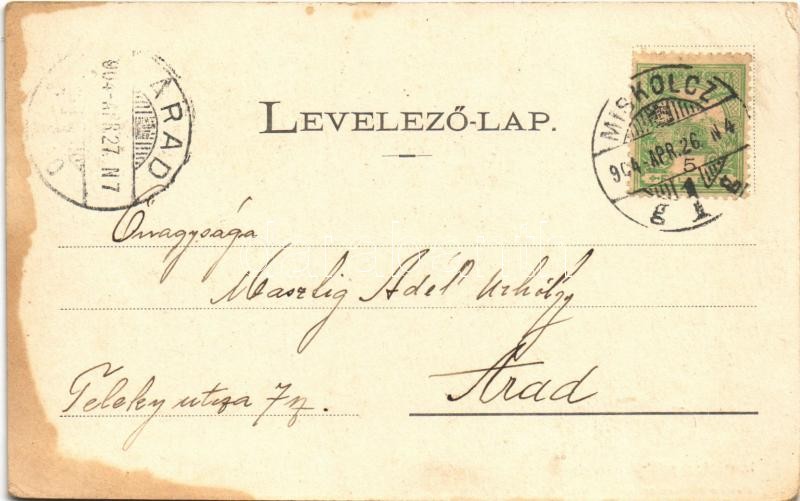 ARAD
904 APR 27. N7
LEVELEZŐ-LAP.
MISKOLCZ
904 APR. 26 N4
5
Őnagysága
Maszlig Adél Urhölgy
Arad
Teleky utcza 7 sz.